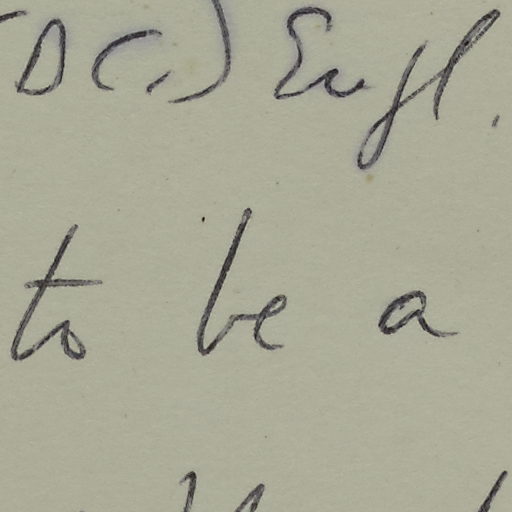 DC.) Engl.
to be a